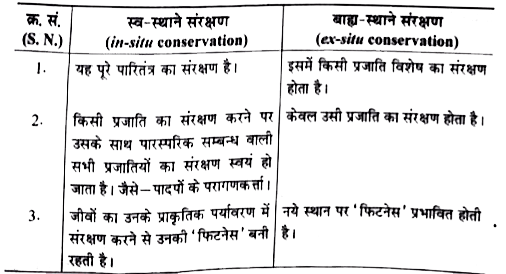 क्र. सं. स्व-स्थाने संरक्षण बाह्य-स्थाने संरक्षण
(S. N.) (in-situ conservation) (ex-situ conservation)
1. यह पूरे पारितंत्र का संरक्षण है। इसमें किसी प्रजाति विशेष का संरक्षण
होता है।
2. किसी प्रजाति का संरक्षण करने पर केवल उसी प्रजाति का संरक्षण होता है।
उसके साथ पारस्परिक सम्बन्ध वाली
सभी प्रजातियों का संरक्षण स्वयं हो
जाता है। जैसे–पादपों के परागणकर्त्ता।
3. जीवों का उनके प्राकृतिक पर्यावरण में नये स्थान पर 'फिटनेस' प्रभावित होती
संरक्षण करने से उनकी 'फिटनेस' बनी है।
रहती है।